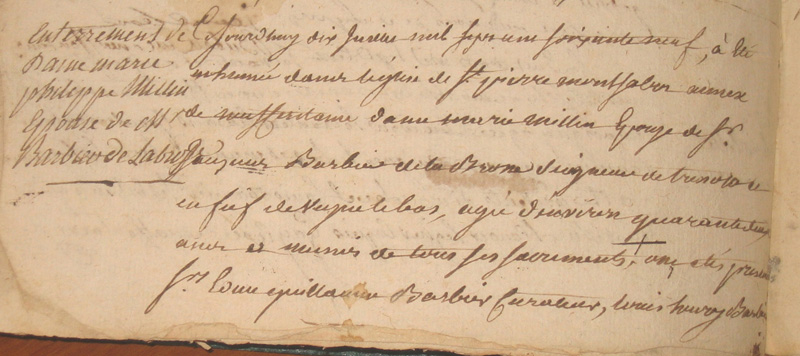 Enterrement de
Dame marie
philippe Millin
Epouse de Mr
Barbier de Labro
Cejourdhuy dix Juillet mil sept cent soixante neuf, à été
inhumée dans léglise de St pierre montsalier annex
de dame marie millin Epouse de Sr
Jacques Barbier de la Brosse Seigneur de
en fief de le bas, agée denviron quarante deux
ans et munis de tous ses sacrements, ont étés presents
Srs Edme guillaume Barbier Curateur, Louis henry Barbier